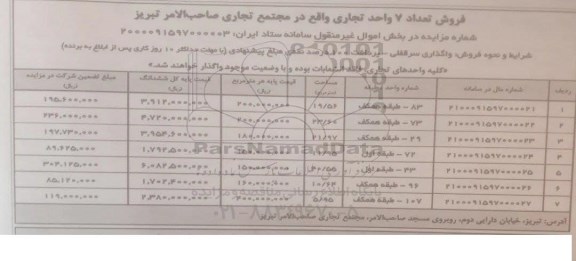 فروش تعداد ۷ واحد تجاری واقع در مجتمع تجاری صاحب‌الامر تبریز
شماره مزایده در بخش اموال غیرمنقول سامانه ستاد ایران: ۲۰۰۰۰۰۹۱۵۹۷۰۰۰۰۰۳
شرایط و نحوه فروش: واگذاری سرقفلی - درصد نقدی مبلغ پیشنهادی (با مهلت حداکثر ۱۰ روز کاری پس از ابلاغ به برنده)
«کلیه واحدهای تجاری فاقد انشعابات بوده و با وضعیت موجود واگذار خواهند شد.»
ردیف شماره مال در سامانه شماره واحد مساحت قیمت پایه هر مترمربع (ریال) قیمت پایه کل ششدانگ (ریال) مبلغ تضمین شرکت در مزایده (ریال)
۱ ۲۱۰۰۰۰۹۱۵۹۷۰۰۰۰۲۱ ۸۳ - طبقه همکف ۱۹/۵۶ ۲۰۰,۰۰۰,۰۰۰ ۳,۹۱۲,۰۰۰,۰۰۰ ۱۹۵,۶۰۰,۰۰۰
۲ ۲۱۰۰۰۰۹۱۵۹۷۰۰۰۰۲۲ ۷۳ - طبقه همکف ۲۰۰,۰۰۰,۰۰۰ ۴,۷۲۰,۰۰۰,۰۰۰ ۲۳۶,۰۰۰,۰۰۰
۳ ۲۱۰۰۰۰۹۱۵۹۷۰۰۰۰۲۳ ۲۹ - طبقه همکف ۲۱/۹۷ ۱۸۰,۰۰۰,۰۰۰ ۳,۹۵۴,۶۰۰,۰۰۰ ۱۹۷,۷۳۰,۰۰۰
۴ ۲۱۰۰۰۰۹۱۵۹۷۰۰۰۰۲۴ ۷۲ - طبقه اول ۱,۷۹۲,۵۰۰,۰۰۰ ۸۹,۶۲۵,۰۰۰
۵ ۲۱۰۰۰۰۹۱۵۹۷۰۰۰۰۲۵ ۴۳ - طبقه اول ۴۰/۵۵ ۱۵۰,۰۰۰,۰۰۰ ۶,۰۸۲,۵۰۰,۰۰۰ ۳۰۴,۱۲۵,۰۰۰
۶ ۲۱۰۰۰۰۹۱۵۹۷۰۰۰۰۲۶ ۹۶ - طبقه همکف ۱۰/۶۴ ۱۶۰,۰۰۰,۰۰۰ ۱,۷۰۲,۴۰۰,۰۰۰ ۸۵,۱۲۰,۰۰۰
۷ ۲۱۰۰۰۰۹۱۵۹۷۰۰۰۰۲۷ ۱۰۷ - طبقه همکف ۵/۹۵ ۴۰۰,۰۰۰,۰۰۰ ۲,۳۸۰,۰۰۰,۰۰۰ ۱۱۹,۰۰۰,۰۰۰
آدرس: تبریز، خیابان دارایی دوم، روبروی مسجد صاحب‌الامر، مجتمع تجاری صاحب‌الامر تبریز
ParsNamadData
پایگاه اطلاع رسانی مناقصه و مزایده
۰۲۱-۸۸۳۴۹۶۷۰-۵